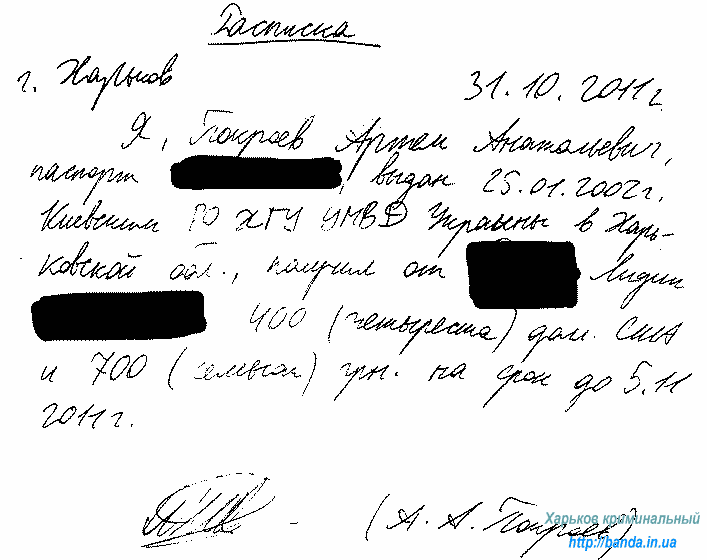 Расписка
г. Харьков 31.10.2011г.
Я, Покроев Артем Анатольевич,
паспорт , выдан 25.01.2002г.
Киевским РО ХГУ УМВД Украины в Харь-
ковской обл., получил от Лидии
400 (четыреста) дол. США
и 700 (семьсот) грн. на срок до 5.11
2011г.
(А. А. Покроев)
Харьков криминальный
http://banda.in.ua